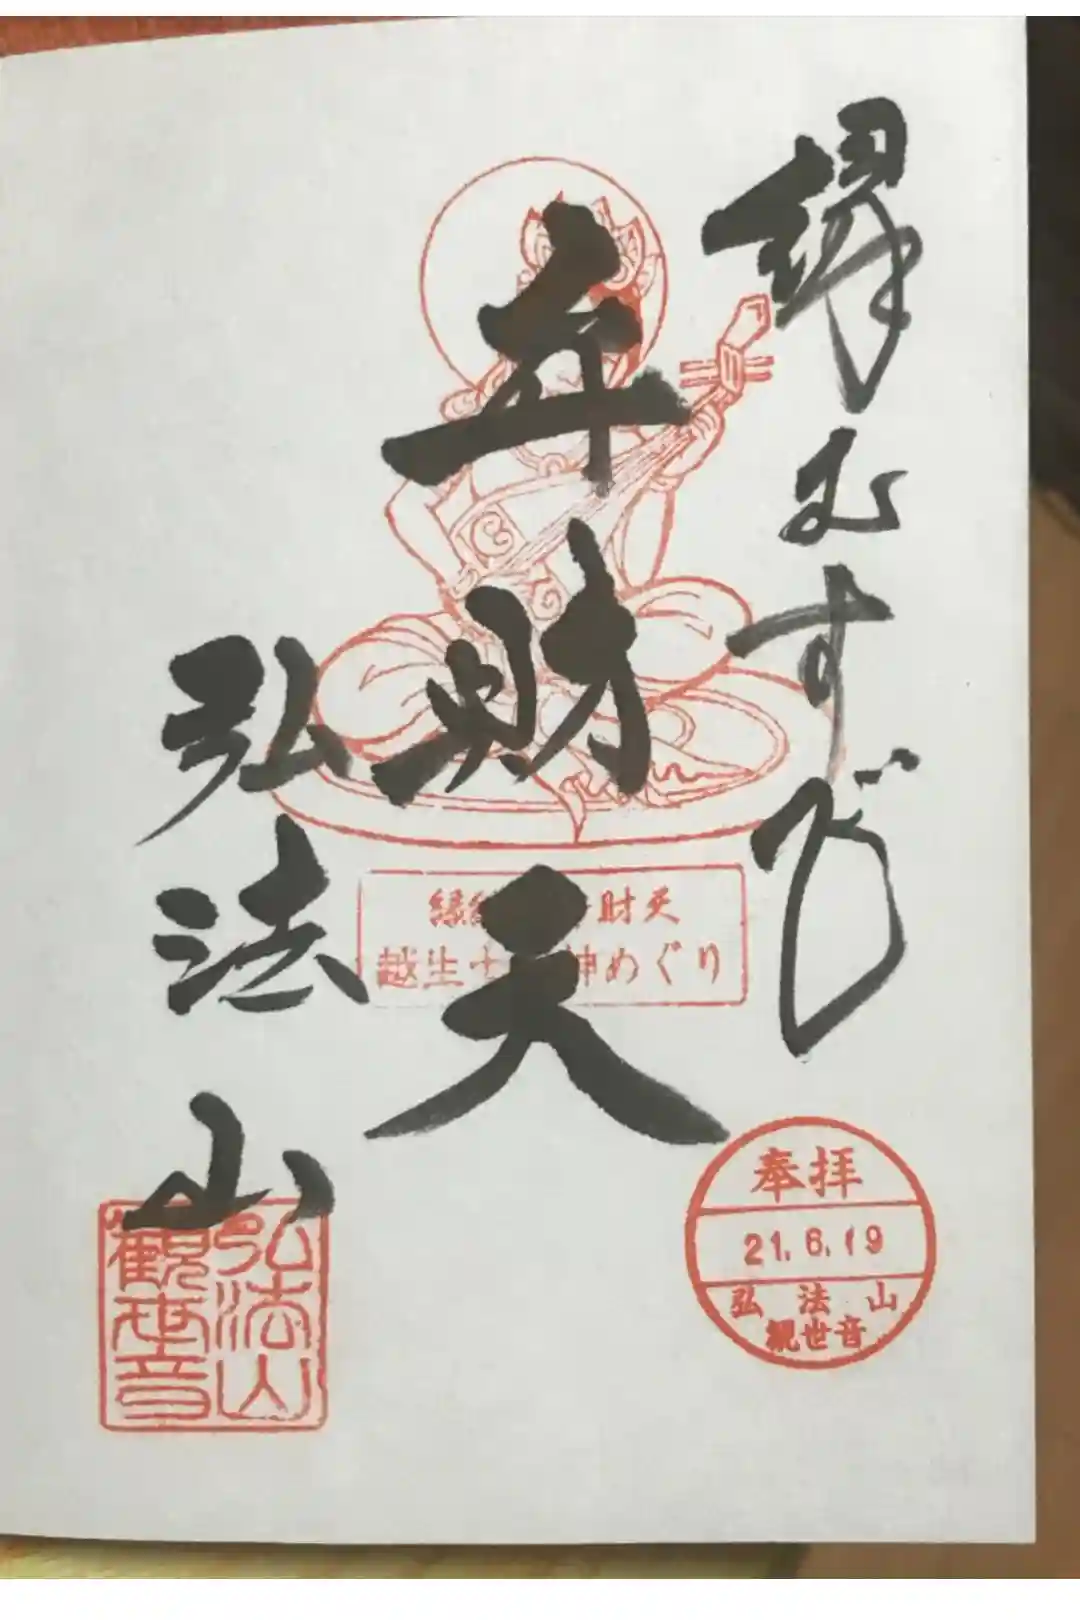 縁むすび
弁財天
弘法山
縁結 財天
越生七 神めぐり
奉拝
21.6.19
弘法山
観世音
弘法山
観世音